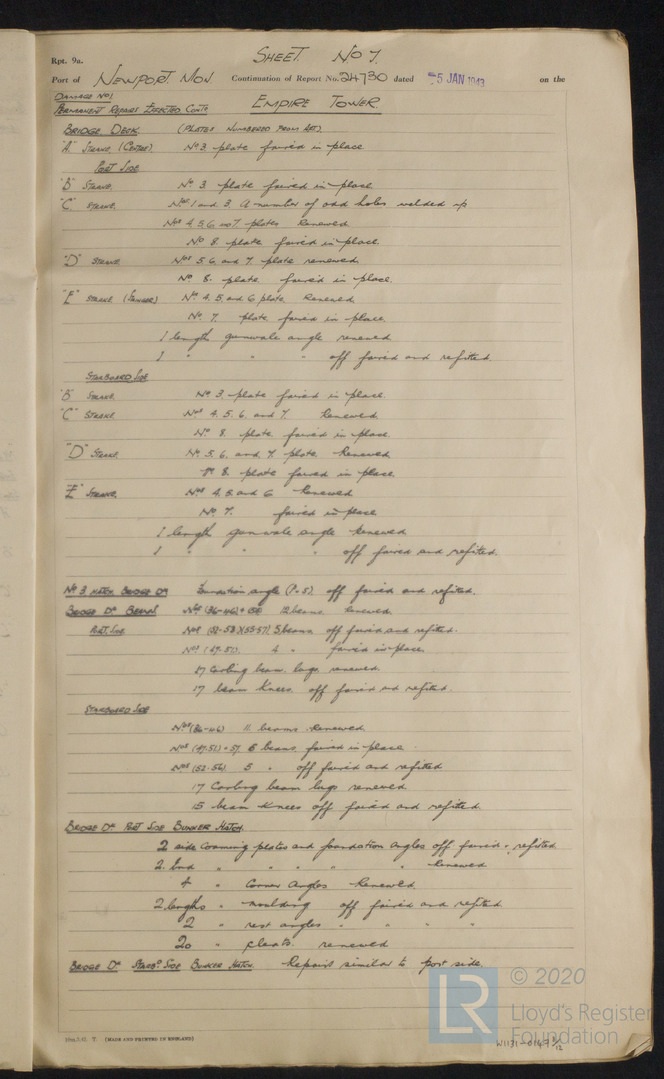 Rpt. 9a.
SHEET No 7.
Port of NEWPORT MON Continuation of Report No. 24730 dated -5 JAN 1943 on the
DAMAGE No 1
PERMANENT REPAIRS EFFECTED CONTD.
EMPIRE TOWER.
BRIDGE DECK (PLATES NUMBERED FROM AFT).
"A" STRAKE (CENTRE) No 3 plate faired in place
PORT SIDE
"B" STRAKE. No 3 plate faired in place.
"C" STRAKE. Nos 1 and 3. A number of odd holes welded up
Nos 4, 5, 6, and 7 plates Renewed
No 8 plate faired in place.
"D" STRAKE Nos 5, 6 and 7 plate renewed.
No 8. plate faired in place.
"E" STRAKE (STRINGER) Nos 4, 5, and 6 plate Renewed
No. 7. plate faired in place.
1 length gunwale angle renewed
1 " " " off faired and refitted
STARBOARD SIDE
"B" STRAKE. No 3. plate faired in place.
"C" STRAKE Nos 4, 5, 6, and 7. Renewed
No 8. plate faired in place.
"D" STRAKE. Nos 5, 6, and 7. plate Renewed
No 8 plate faired in place.
"E" STRAKE. Nos 4, 5 and 6 Renewed
No 7. faired in place
1 length gunwale angle Renewed
1 " " " off faired and refitted.
No 3 HATCH BRIDGE DK Foundation angle (P+S). off faired and refitted.
BRIDGE DK BEAMS Nos (36-46)+ 12 beams renewed.
PORT SIDE Nos (52-53)(55-57) 5 beams off faired and refitted.
Nos (47-51). 4 " faired in place.
17 Carling beam lugs renewed.
17 beam Knees off faired and refitted.
STARBOARD SIDE
Nos (36-46) 11 beams Renewed
Nos (47-51)+57. 6 beams faired in place
Nos (52-56) 5 " off faired and refitted
17 Carling beam lugs renewed
15 beam Knees off faired and refitted.
BRIDGE DK PORT SIDE BUNKER HATCH.
2 side coaming plates and foundation angles off faired + refitted
2 End " " " " " Renewed
4 " corner angles Renewed
2 lengths " moulding off faired and refitted
2 " rest angles " " " "
20 " cleats. renewed
BRIDGE DK STARBD SIDE BUNKER HATCH. Repairs similar to port side.
(MADE AND PRINTED IN ENGLAND)
LR
© 2020
Lloyd's Register
Foundation
W1131-0149 8/12